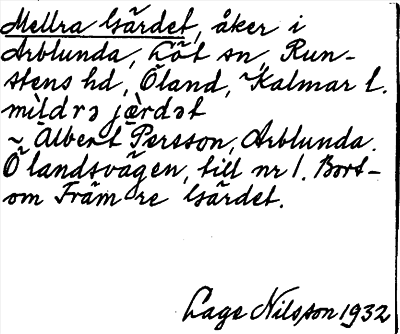 Mellra Gärdet, åker i
Arblunda, Löt sn, Run-
stens hd, Öland, Kalmar l.
mìldrə jæ̀rdət
~ Albert Persson, Arblunda.
Ö landsvägen, till nr 1. Bort-
om Främre Gärdet.
Lage Nilsson 1932